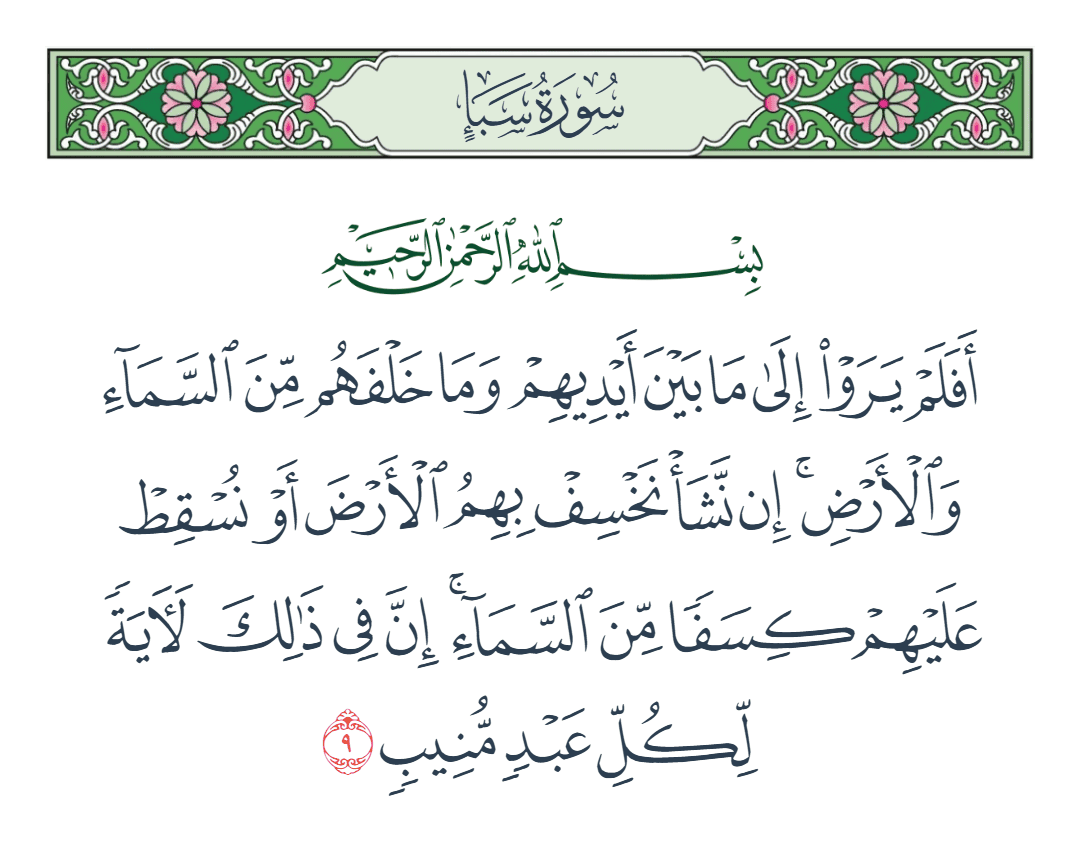 سُورَةُ سَبَإٍ
بِسْمِ ٱللَّهِ ٱلرَّحْمَٰنِ ٱلرَّحِيمِ
أَفَلَمْ يَرَوْا۟ إِلَىٰ مَا بَيْنَ أَيْدِيهِمْ وَمَا خَلْفَهُم مِّنَ ٱلسَّمَآءِ
وَٱلْأَرْضِ ۚ إِن نَّشَأْ نَخْسِفْ بِهِمُ ٱلْأَرْضَ أَوْ نُسْقِطْ
عَلَيْهِمْ كِسَفًا مِّنَ ٱلسَّمَآءِ ۚ إِنَّ فِى ذَٰلِكَ لَـَٔايَةً
لِّكُلِّ عَبْدٍ مُّنِيبٍ ٩